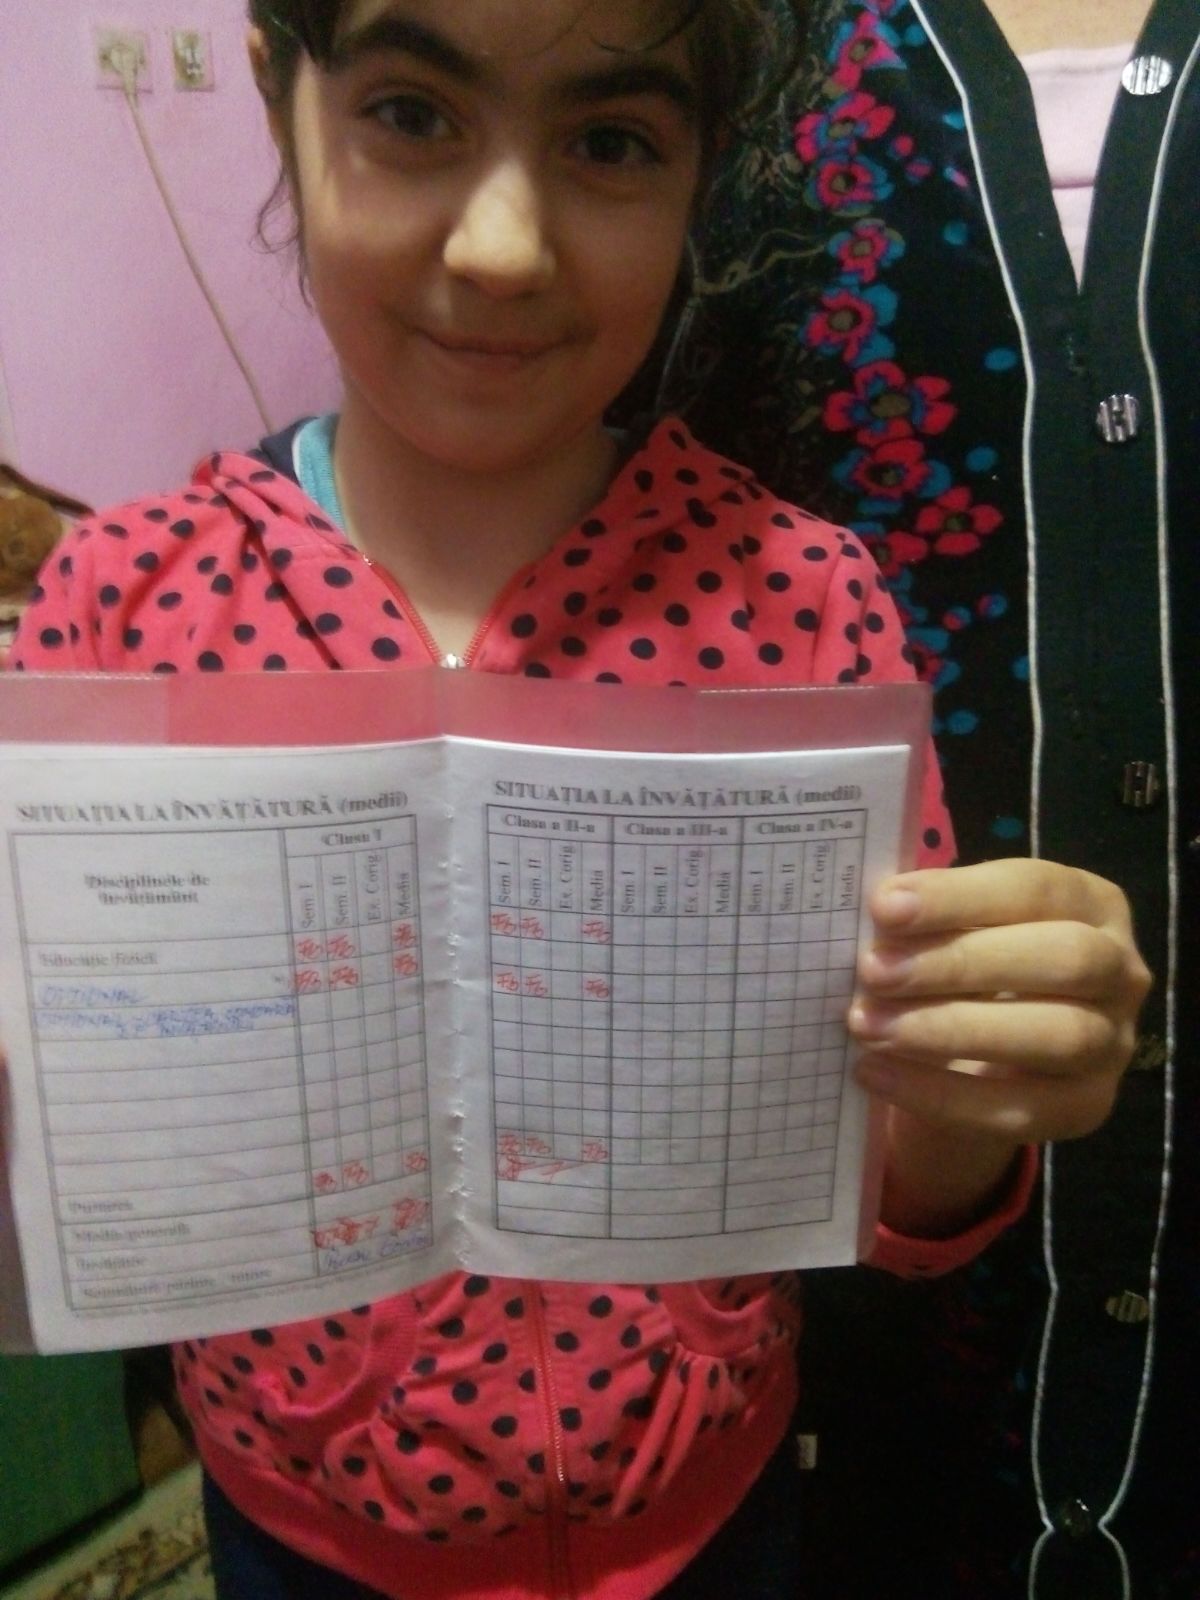 SITUAȚIA LA ÎNVĂȚĂTURĂ (medii)
Disciplinele de
învățământ
Clasa I
Sem. I
Sem. II
Ex. Corig.
Media
Educație fizică
FB FB FB
OPȚIONAL
FB FB FB
OPȚIONAL
Purtarea
FB FB FB
Media generală
Învățător
Semnătură părinte / tutore
SITUAȚIA LA ÎNVĂȚĂTURĂ (medii)
Clasa a II-a Clasa a III-a Clasa a IV-a
Sem. I Sem. II Ex. Corig. Media Sem. I Sem. II Ex. Corig. Media Sem. I Sem. II Ex. Corig. Media
FB FB FB
FB FB FB
FB FB FB